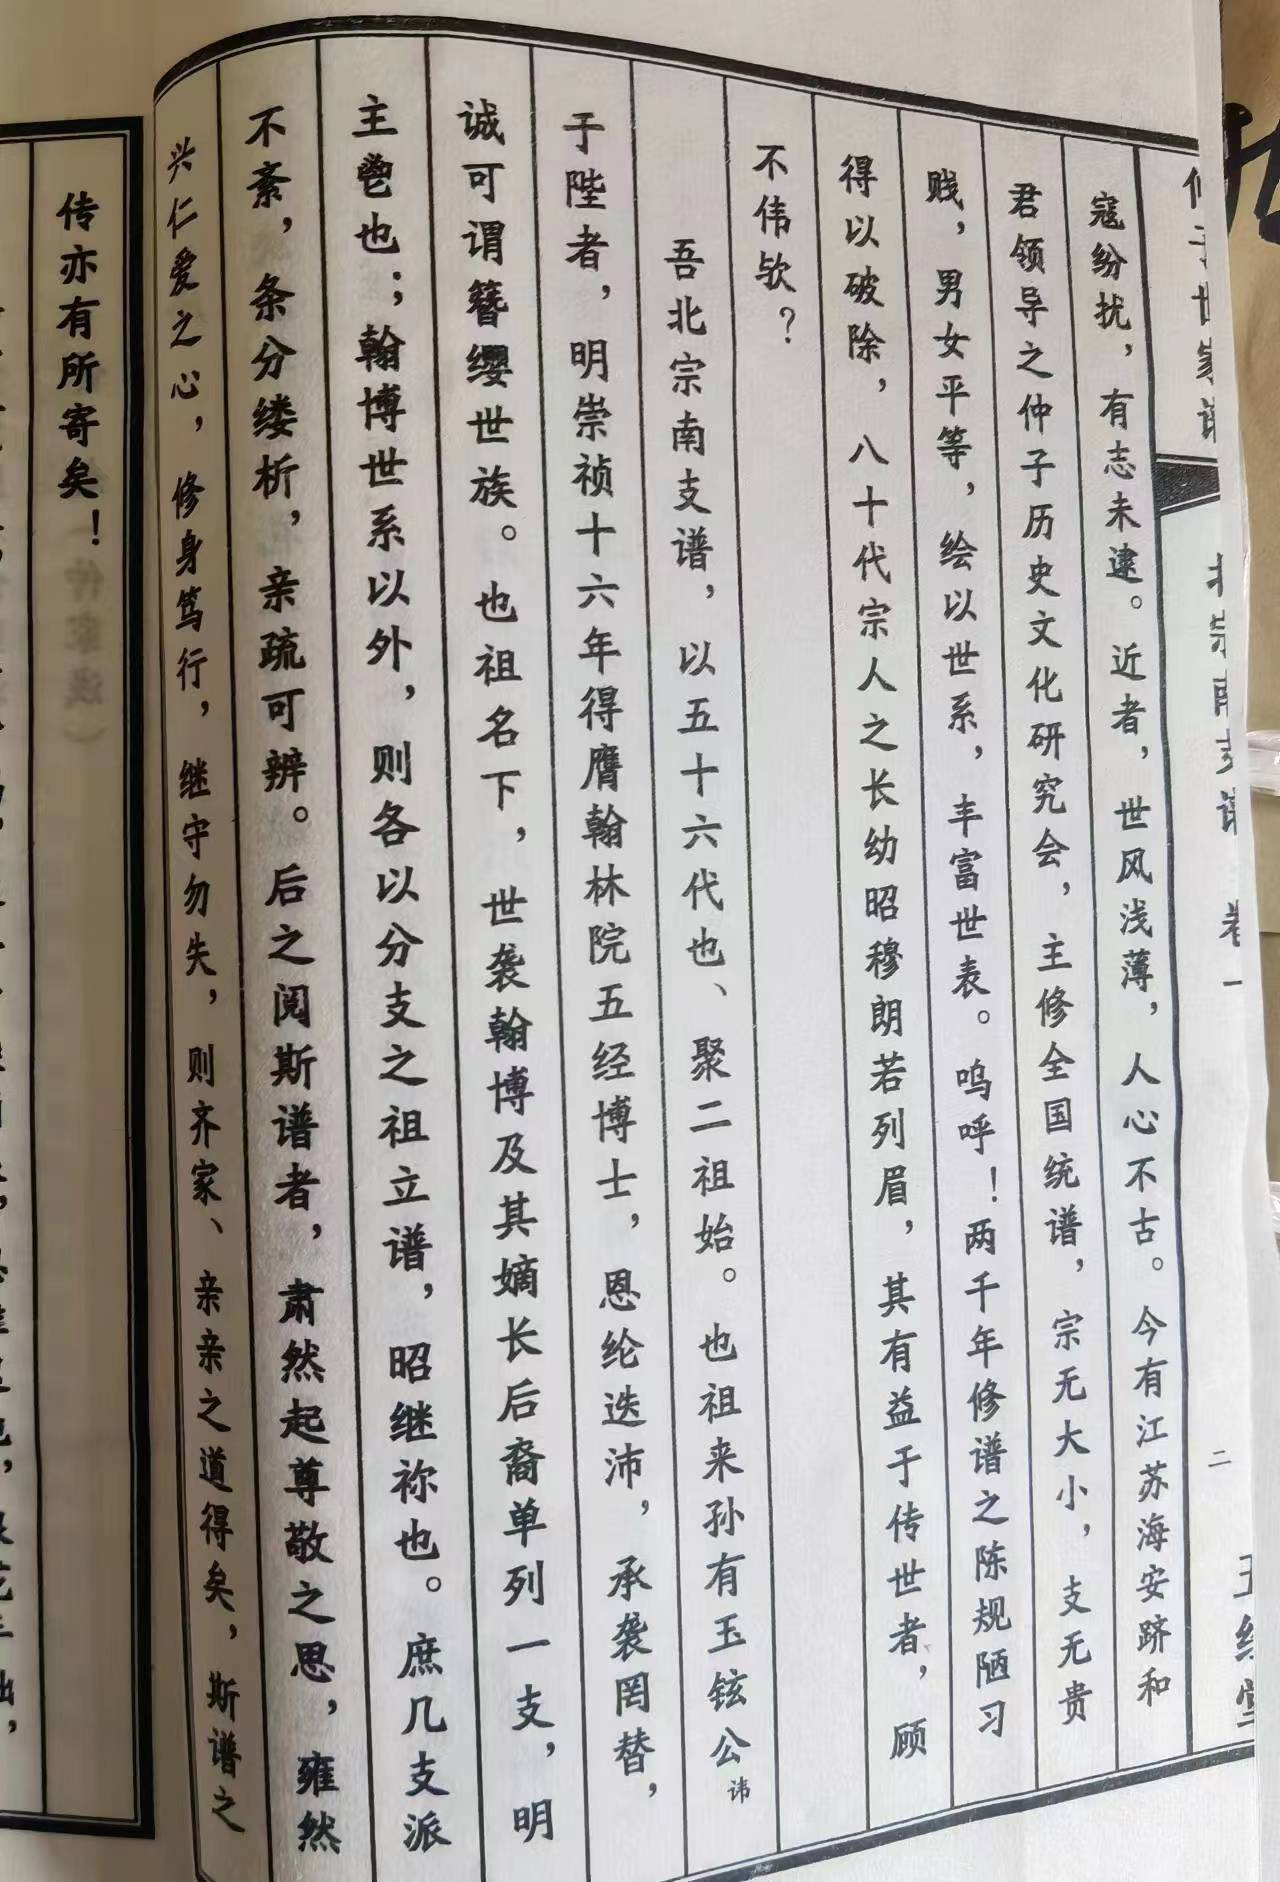 世家谱
北宗南支谱 卷一
二
寇纷扰，有志未逮。近者，世风浅薄，人心不古。今有江苏海安跻和
君领导之仲子历史文化研究会，主修全国统谱，宗无大小，支无贵
贱，男女平等，绘以世系，丰富世表。呜呼！两千年修谱之陈规陋习
得以破除，八十代宗人之长幼昭穆朗若列眉，其有益于传世者，顾
不伟欤？
吾北宗南支谱，以五十六代也、聚二祖始。也祖来孙有玉铉公讳
于陛者，明崇祯十六年得膺翰林院五经博士，恩纶迭沛，承袭罔替，
诚可谓簪缨世族。也祖名下，世袭翰博及其嫡长后裔单列一支，明
主鬯也；翰博世系以外，则各以分支之祖立谱，昭继祢也。庶几支派
不紊，条分缕析，亲疏可辨。后之阅斯谱者，肃然起尊敬之思，雍然
兴仁爱之心，修身笃行，继守勿失，则齐家、亲亲之道得矣，斯谱之
传亦有所寄矣！